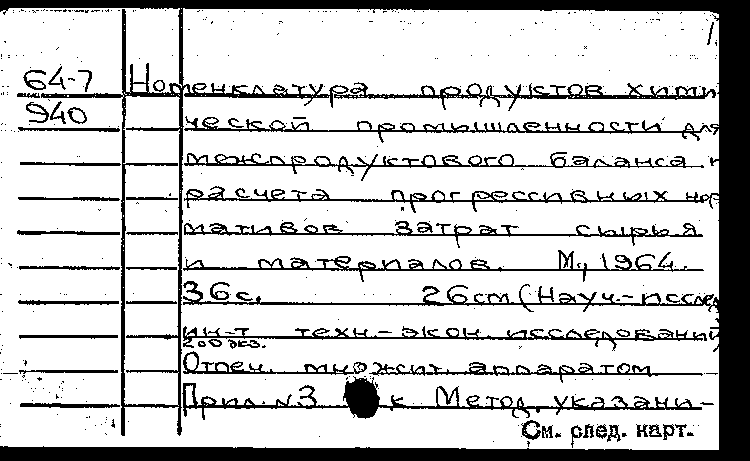 1
64-7 Номенклатура продуктов хими
940 ческой промышленности для
межпродуктового баланса и
расчета прогрессивных нор
мативов затрат сырья
и материалов. М., 1964.
36с. 26см (Науч.-исслед
ин-т техн.-экон. исследований
200 экз.
Отпеч. множит. аппаратом
Прил. №3 к Метод. указани-
См. след. карт.